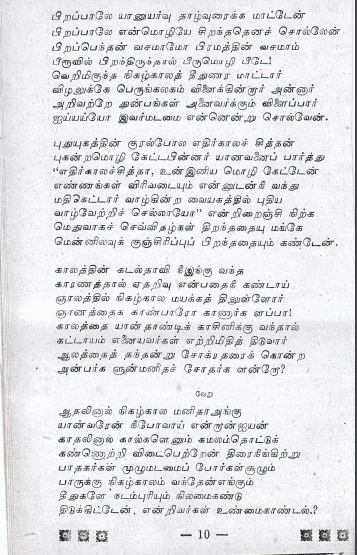 பிறப்பாலே யானுயர்வு தாழ்வுரைக்க மாட்டேன்
பிறப்பாலே என்மொழியே சிறந்ததெனச் சொல்லேன்
பிறப்பெந்தன் வசமாமோ பிரமத்தின் வசமாம்
பீருவில் பிறந்திருந்தால் பீருமொழி பீடே!
வெறிமிகுந்த நிகழ்காலத் தீதுணர மாட்டார்
விழலுக்கே பெருங்கலகம் விளைக்கின்றார் அன்னார்
அறிவற்றே துன்பங்கள் அனைவர்க்கும் விளைப்பார்
ஐய்யய்யோ இவர்மடமை என்னென்று சொல்வேன்.
புதுயுகத்தின் குரல்போல எதிர்காலச் சித்தன்
புகன்றமொழி கேட்டபின்னர் யானவனைப் பார்த்து
"எதிர்காலச்சித்தா, உன்இனிய மொழி கேட்டேன்
எண்ணங்கள் விரிவடையும் என்னுடன்நீ வந்து
மதிகெட்டார் வாழ்கின்ற வையகத்தில் புதிய
வாழ்வேற்றிச் செல்லாயோ" என்றிறைஞ்சி நிற்க
மெதுவாகச் செவ்விதழ்கள் திறந்ததையு மங்கே
மென்னிலவுக் குஞ்சிரிப்புப் பிறந்ததையும் கண்டேன்.
காலத்தின் கடல்தாவி நீஇங்கு வந்த
காரணத்தால் ஏதறிவு என்பதைநீ கண்டாய்
ஞாலத்தில் நிகழ்கால மயக்கத் திலுள்ளோர்
ஞானத்தைக் காண்பாரோ காணார்க ளப்பா!
காலத்தை யான்தாண்டிக் காசினிக்கு வந்தால்
கட்டாயம் எனையவர்கள் எற்றிமிதித் திடுவார்
ஆலத்தைத் தந்தன்று சோக்ரதரைக் கொன்ற
அன்பர்க ளுன்மனிதச் சோதர்க ளன்றோ?
வேறு
ஆதலினால் நிகழ்கால மனிதாஅங்கு
யான்வரேன் நீபோவாய் என்றான்ஐயன்
காதலினால் கால்களெனும் கமலம்தொட்டுக்
கண்ணொற்றி விடைபெற்றேன் திரைநீங்கிற்று
பாதகர்கள் முழுமடமைப் போர்கள்சூழும்
பாருக்கு நிகழ்காலம் வந்தேன்எங்கும்
தீதுகளே நடம்புரியும் நிலமைகண்டு
திடுக்கிட்டேன், என்றிவர்கள் உண்மைகாண்டல்.?
10